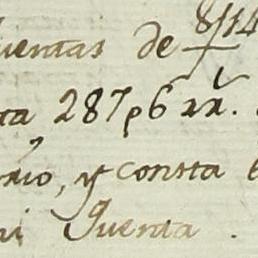 uentas de 8/114
ta 287p6 rr.
rio, y consta
ni Quenta .